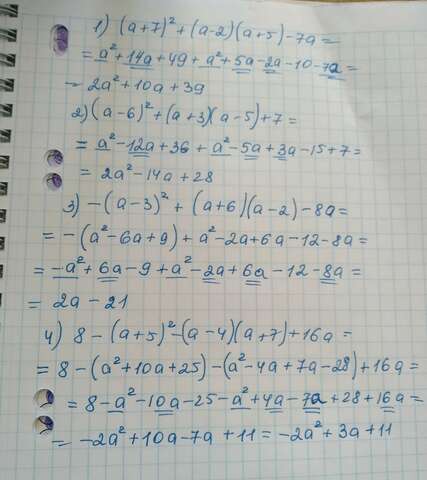 1) (a+7)² + (a-2)(a+5) - 7a =
= a² + 14a + 49 + a² + 5a - 2a - 10 - 7a =
= 2a² + 10a + 39
2) (a-6)² + (a+3)(a-5) + 7 =
= a² - 12a + 36 + a² - 5a + 3a - 15 + 7 =
= 2a² - 14a + 28
3) -(a-3)² + (a+6)(a-2) - 8a =
= -(a² - 6a + 9) + a² - 2a + 6a - 12 - 8a =
= -a² + 6a - 9 + a² - 2a + 6a - 12 - 8a =
= 2a - 21
4) 8 - (a+5)² - (a-4)(a+7) + 16a =
= 8 - (a² + 10a + 25) - (a² - 4a + 7a - 28) + 16a =
= 8 - a² - 10a - 25 - a² + 4a - 7a + 28 + 16a =
= -2a² + 10a - 7a + 11 = -2a² + 3a + 11